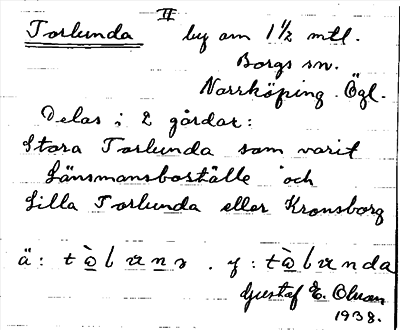 II
Torlunda by om 1 1/2 mtl.
Borgs sn.
Norrköping. Ögl.
Delas i 2 gårdar:
Stora Torlunda som varit
Länsmansboställe och
Lilla Torlunda eller Kronsborg
ä: y:
Gustaf E. Olsson
1938.